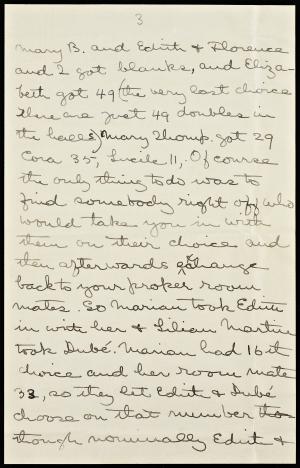 3
Mary B. and Edith & Florence
and I got blanks, and Eliza-
beth got 49 (the very last choice
there are just 49 doubles in
the halls) Mary Thomp. got 29
Cora 35, Lucile 11,. Of course
the only thing to do was to
find somebody right off who
would take you in with
them on their choice and
then afterwards exchange
back to your proper room
mates. So Marian took Edith
in with her & Lilian Martin
took Dubé. Marian had 16th
choice and her room mate
33, so they let Edith & Dubé
choose on that number tho
though nominally Edith &